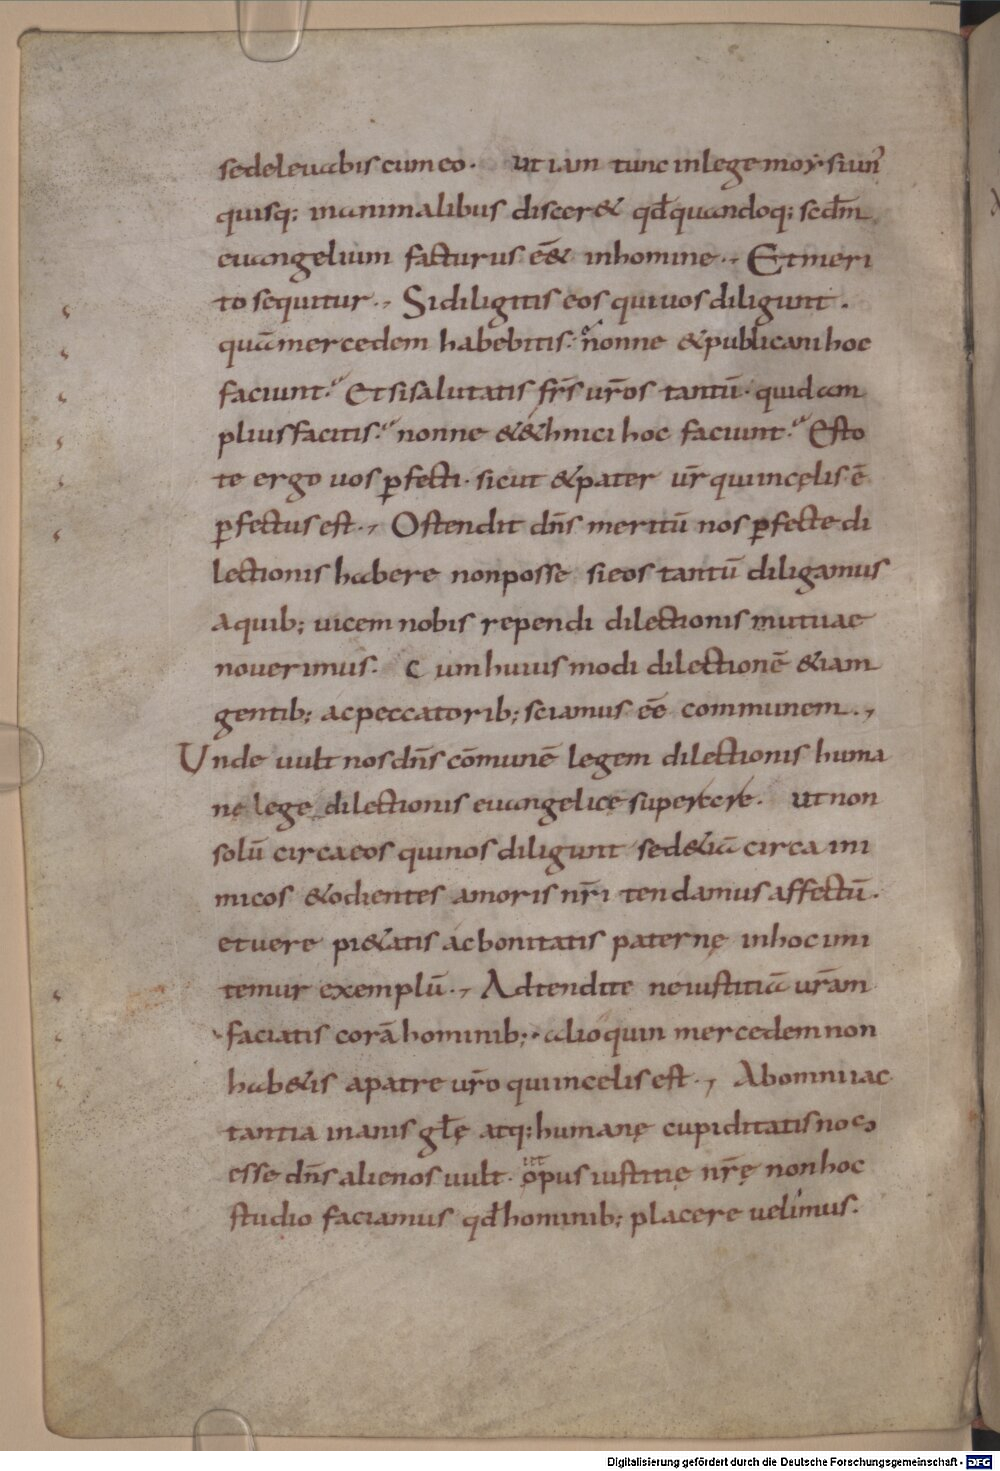 sed eleuabis cum eo. ut iam tunc in lege moysi un᾽
quisq; in animalibus disceret qđ quandoq; scdm̄
euangelium facturus ēet in homine., Et meri
to sequitur., Si diligitis eos qui uos diligunt.
quā mercedem habebitis. nonne &publicani hoc
faciunt. Et si salutatis fr̄s ur̄os tantū. quid am
plius facitis. nonne & ethnici hoc faciunt. Esto
te ergo uos ꝑfecti. sicut & pater ur̄ qui in cęlis ē
ꝑfectus est., Ostendit dn̄s meritū nos ꝑfecte di
lectionis habere non posse si eos tantū diligamus
a quib; uicem nobis rependi dilectionis mutuae
nouerimus. Cum huiusmodi dilectionē &iam
gentib; ac peccatorib; sciamus ēē communem.,
Unde uult nos dn̄s cōmunē legem dilectionis huma
nę lege dilectionis euangelice superere. Ut non
solū circa eos qui nos diligunt sed &iā circa ini
micos & odientes amoris nr̄i tendamus affectū.
et uere pi&atis ac bonitatis paternę in hoc imi
temur exemplū., Adtendite ne iustitiā ur̄am
faciatis corā hominib; alioquin mercedem non
hab&is apatre ur̄o qui in celis est., Ab omni iac
tantia inanis gl̄ę atq; humanę cupiditatis nos
esse dn̄s alienos uult. ut opus iustitię nr̄ę non hoc
studio faciamus qđ hominib; placere uelimus.
Digitalisierung gefördert durch die Deutsche Forschungsgemeinschaft - DFG